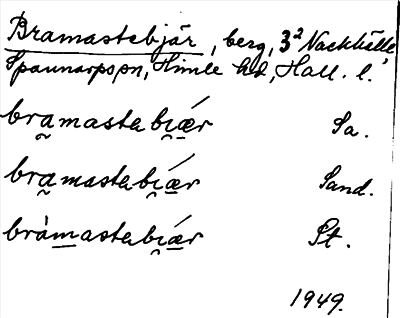 Bramastabjär, berg, 3² Nackhälle,
Spannarps sn, Himle hd, Hall. l.
bramastabjær Sa.
bramastabjær Sand.
bràmastabjær St.
1949.